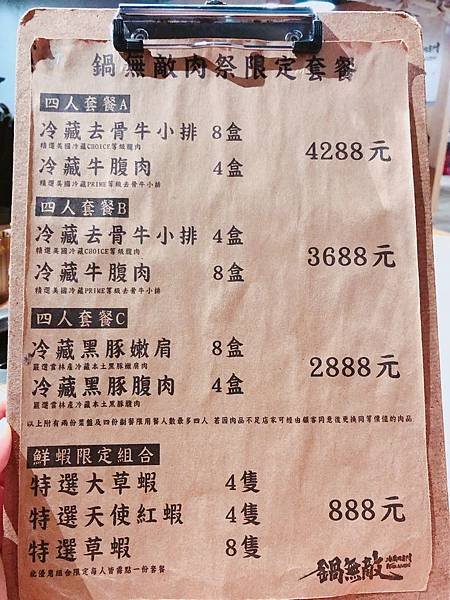 鍋無敵肉祭限定套餐
四人套餐A
冷藏去骨牛小排 8盒
精選美國冷藏CHOICE等級腹肉
4288元
冷藏牛腹肉 4盒
精選美國冷藏PRIME等級去骨牛小排
四人套餐B
冷藏去骨牛小排 4盒
精選美國冷藏CHOICE等級腹肉
3688元
冷藏牛腹肉 8盒
精選美國冷藏PRIME等級去骨牛小排
四人套餐C
冷藏黑豚嫩肩 8盒
嚴選雲林產冷藏本土黑豚嫩肩肉
2888元
冷藏黑豚腹肉 4盒
嚴選雲林產冷藏本土黑豚腹肉
以上附有兩份菜盤及四份副餐限用餐人數最多四人 若因肉品不足店家可經由顧客同意後更換同等價值的肉品
鮮蝦限定組合
特選大草蝦 4隻
特選天使紅蝦 4隻
888元
特選草蝦 8隻
此優惠組合限定每人皆需點一份套餐
鍋無敵